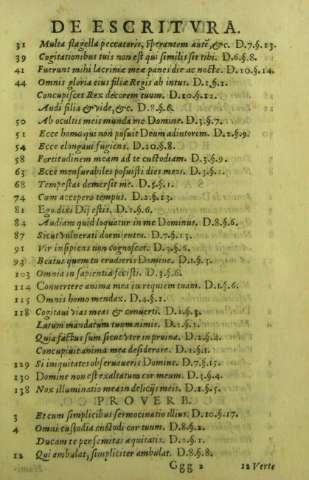 DE ESCRITVRA.
31 Multa flagella peccatoris, Sperantem autē, &c. D.7.§.13.
39 Cogitationibus tuis non est qui similis sit tibi. D.6.§.8.
41 Fuerunt mihi lacrimæ meæ panes die ac nocte. D.10.§.14.
44 Omnis gloria eius filiæ Regis ab intus. D.1.§.1.
Concupiscet Rex decorem tuum. D.10.§.12.
Audi filia & vide, &c. D.8.§.6.
50 Ab ocultis meis munda me Domine. D.3.§.7.
51 Ecce homo qui non posuit Deum adiutorem. D.2.§.9.
54 Ecce elongaui fugiens. D.10.§.8.
58 Fortitudinem meam ad te custodiam. D.3.§.9.
63 Ecce mensurabiles posuisti dies meos. D.3.§.1.
68 Tempestas demersit me. D.5.§.1.
74 Cum accepero tempus. D.2.§.13.
81 Ego dixi Dij estis. D.1.§.6.
84 Audiam quid loquatur in me Dominus. D.8.§.6.
87 Sicut vulnerati dormientes. D.7.§.13.
91 Vir insipiens non cognoscet. D.9.§.6.
93 Beatus quem tu erudieris Domine. D.1.§.3.
103 Omnia in sapientia fecisti. D.3.§.6.
114 Conuertere anima mea in requiem tuam. D.1.§.6.
115 Omnis homo mendax. D.4.§.2.
118 Cogitaui vias meas & conuerti. D.2.§.3.
Latum mandatum tuum nimis. D.1.§.1.
Quia factus sum sicut vter in pruina. D.2.§.2.
Concupiuit anima mea desiderare. D.1.§.1.
129 Si iniquitates obseruaueris Domine. D.7.§.15.
130 Domine non est exaltatum cor meum. D.5.§.4.
138 Nox illuminatio mea in delicijs meis. D.2.§.5.
PROVERB.
3 Et cum simplicibus sermocinatio illius. D.10.§.17.
4 Omni custodia custodi cor tuum. D.8.§.2.
Ducam te per semitas æquitatis. D.2.§.1.
12 Qui ambulat, simpliciter ambulat. D.8.§.8.
Ggg 2 12 Verte